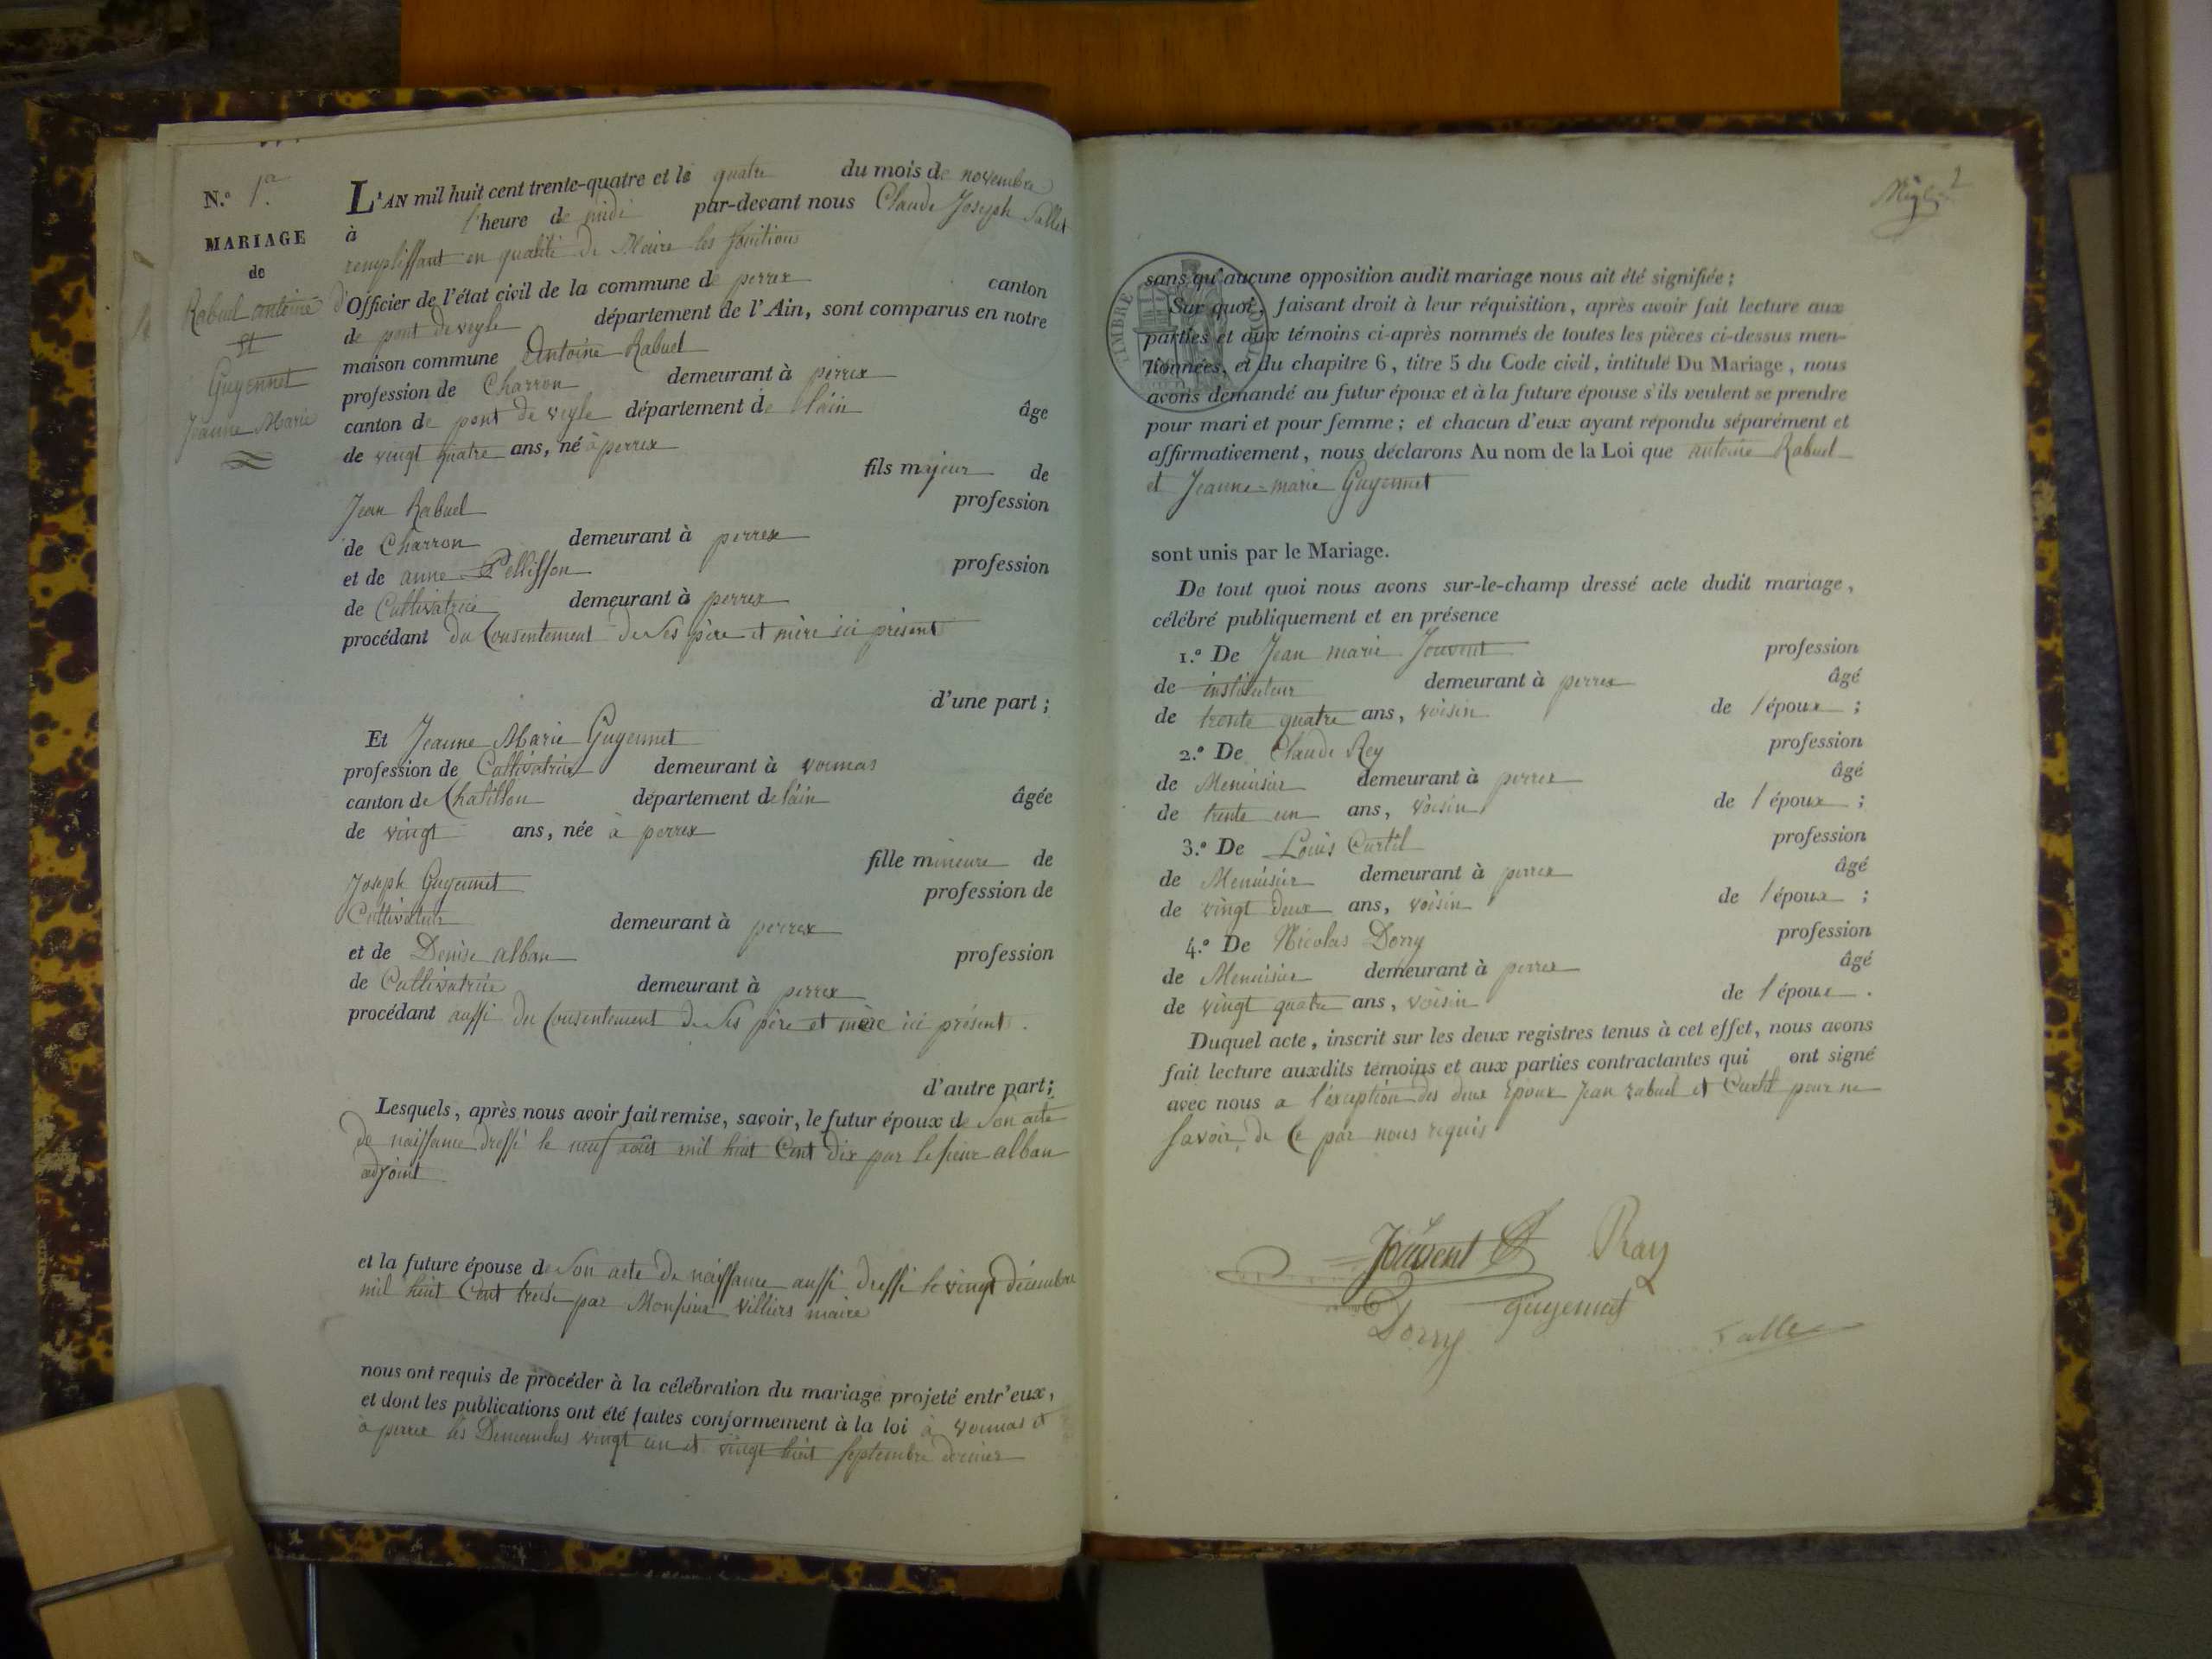 N.º 1er
MARIAGE
de
Rabuel antoine
et
Guyennet
Jeanne Marie
L'AN mil huit cent trente-quatre et le quatre du mois de novembre
à l'heure de midi par-devant nous Claude Joseph Sallet
remplissant en qualité de Maire les fonctions
d'Officier de l'état civil de la commune de perrex canton
de pont de veyle département de l'Ain, sont comparus en notre
maison commune Antoine Rabuel
profession de Charron demeurant à perrex
canton de pont de veyle département de l'ain âge
de vingt quatre ans, né à perrex
fils majeur de
Jean Rabuel profession
de Charron demeurant à perrex
et de anne Pellisson profession
de Cultivatrice demeurant à perrex
procédant du Consentement de Ses père et mère ici présent
d'une part ;
Et Jeanne Marie Guyennet
profession de Cultivatrice demeurant à vonnas
canton de Chatillon département de l'ain âgée
de vingt ans, née à perrex
fille mineure de
Joseph Guyennet profession de
Cultivateur demeurant à perrex
et de Denise alban profession
de Cultivatrice demeurant à perrex
procédant aussi du Consentement de Ses père et mère ici présent.
d'autre part;
Lesquels, après nous avoir fait remise, savoir, le futur époux de Son acte
de naissance dressé le neuf août mil huit Cent dix par le sieur alban
adjoint
et la future épouse de Son acte de naissance aussi dressé le vingt décembre
mil huit Cent treise par Monsieur villiers maire
nous ont requis de procéder à la célébration du mariage projeté entr'eux,
et dont les publications ont été faites conformement à la loi à vonnas et
à perrex les Dimanches vingt un et vingt huit septembre dernier
2
TIMBRE
sans qu'aucune opposition audit mariage nous ait été signifiée ;
Sur quoi, faisant droit à leur réquisition, après avoir fait lecture aux
parties et aux témoins ci-après nommés de toutes les pièces ci-dessus men-
tionnées, et du chapitre 6, titre 5 du Code civil, intitulé Du Mariage, nous
avons demandé au futur époux et à la future épouse s'ils veulent se prendre
pour mari et pour femme ; et chacun d'eux ayant répondu séparément et
affirmativement, nous déclarons Au nom de la Loi que antoine Rabuel
et Jeanne-marie Guyennet
sont unis par le Mariage.
De tout quoi nous avons sur-le-champ dressé acte dudit mariage,
célébré publiquement et en présence
1.º De Jean marie Jouvent profession
de instituteur demeurant à perrex âgé
de trente quatre ans, voisin de l'époux ;
2.º De Claude Rey profession
de Menuisier demeurant à perrex âgé
de trente un ans, voisin de l'époux ;
3.º De Louis Curtil profession
de Menuisier demeurant à perrex âgé
de vingt deux ans, voisin de l'époux ;
4.º De Nicolas Dorry profession
de Menuisier demeurant à perrex âgé
de vingt quatre ans, voisin de l'époux .
Duquel acte, inscrit sur les deux registres tenus à cet effet, nous avons
fait lecture auxdits témoins et aux parties contractantes qui ont signé
avec nous a l'exception des deux Epoux Jean rabuel et Curtil pour ne
Savoir, de Ce par nous requis
Jouvent Ray
Dorry guyennet
Sallet